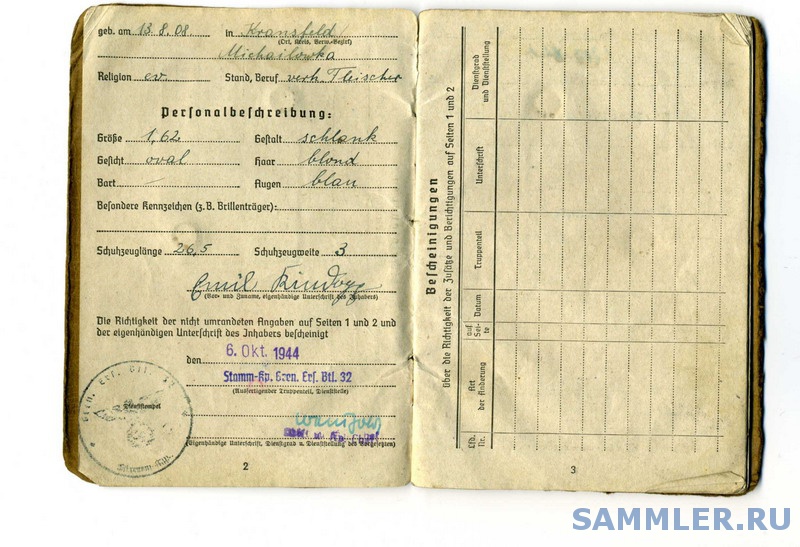 geb. am 13.8.08. in Kransfeld
(Ort, Kreis, Verw.-Bezirk)
Michailowka
Religion ev. Stand, Beruf verh. Fleischer
Personalbeschreibung:
Größe 1,62 Gestalt schlank
Gesicht oval Haar blond
Bart — Augen blau
Besondere Kennzeichen (z.B. Brillenträger):
Schuhzeuglänge 26,5 Schuhzeugweite 3
Emil
(Vor- und Zuname, eigenhändige Unterschrift des Inhabers)
Die Richtigkeit der nicht umrandeten Angaben auf Seiten 1 und 2 und
der eigenhändigen Unterschrift des Inhabers bescheinigt
den 6. Okt. 1944
Stamm-Kp. Gren. Ers. Btl. 32
(Ausfertigender Truppenteil, Dienststelle)
Gren. Ers. Btl. 32
Dienststempel
(Eigenhändige Unterschrift, Dienstgrad u. Dienststellung des Vorgesetzten)
2
Bescheinigungen
über die Richtigkeit der Zusätze und Berichtigungen auf Seiten 1 und 2
Lfd. Nr.
Art der Änderung
auf Seite
Datum
Truppenteil
Unterschrift
Dienstgrad und Dienststellung
3
SAMMLER.RU